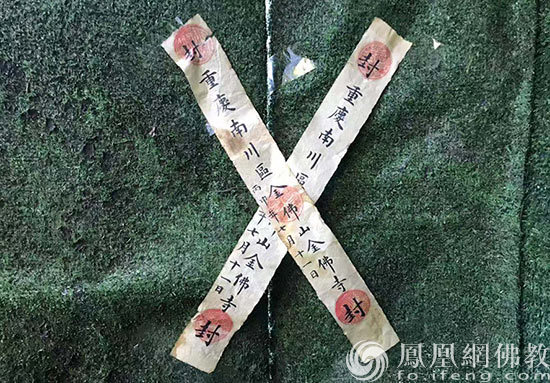 封
重慶南川區金佛山金佛寺
丙申年七月十一日
封
封
重慶南川
山金佛寺
七月十一日
封
鳳凰網佛教
fo.ifeng.com